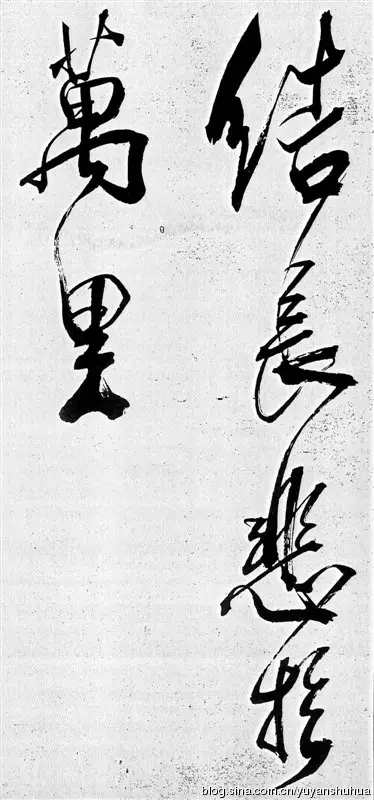 結長悲於
萬里
blog.sina.com.cn/yuyanshuhua